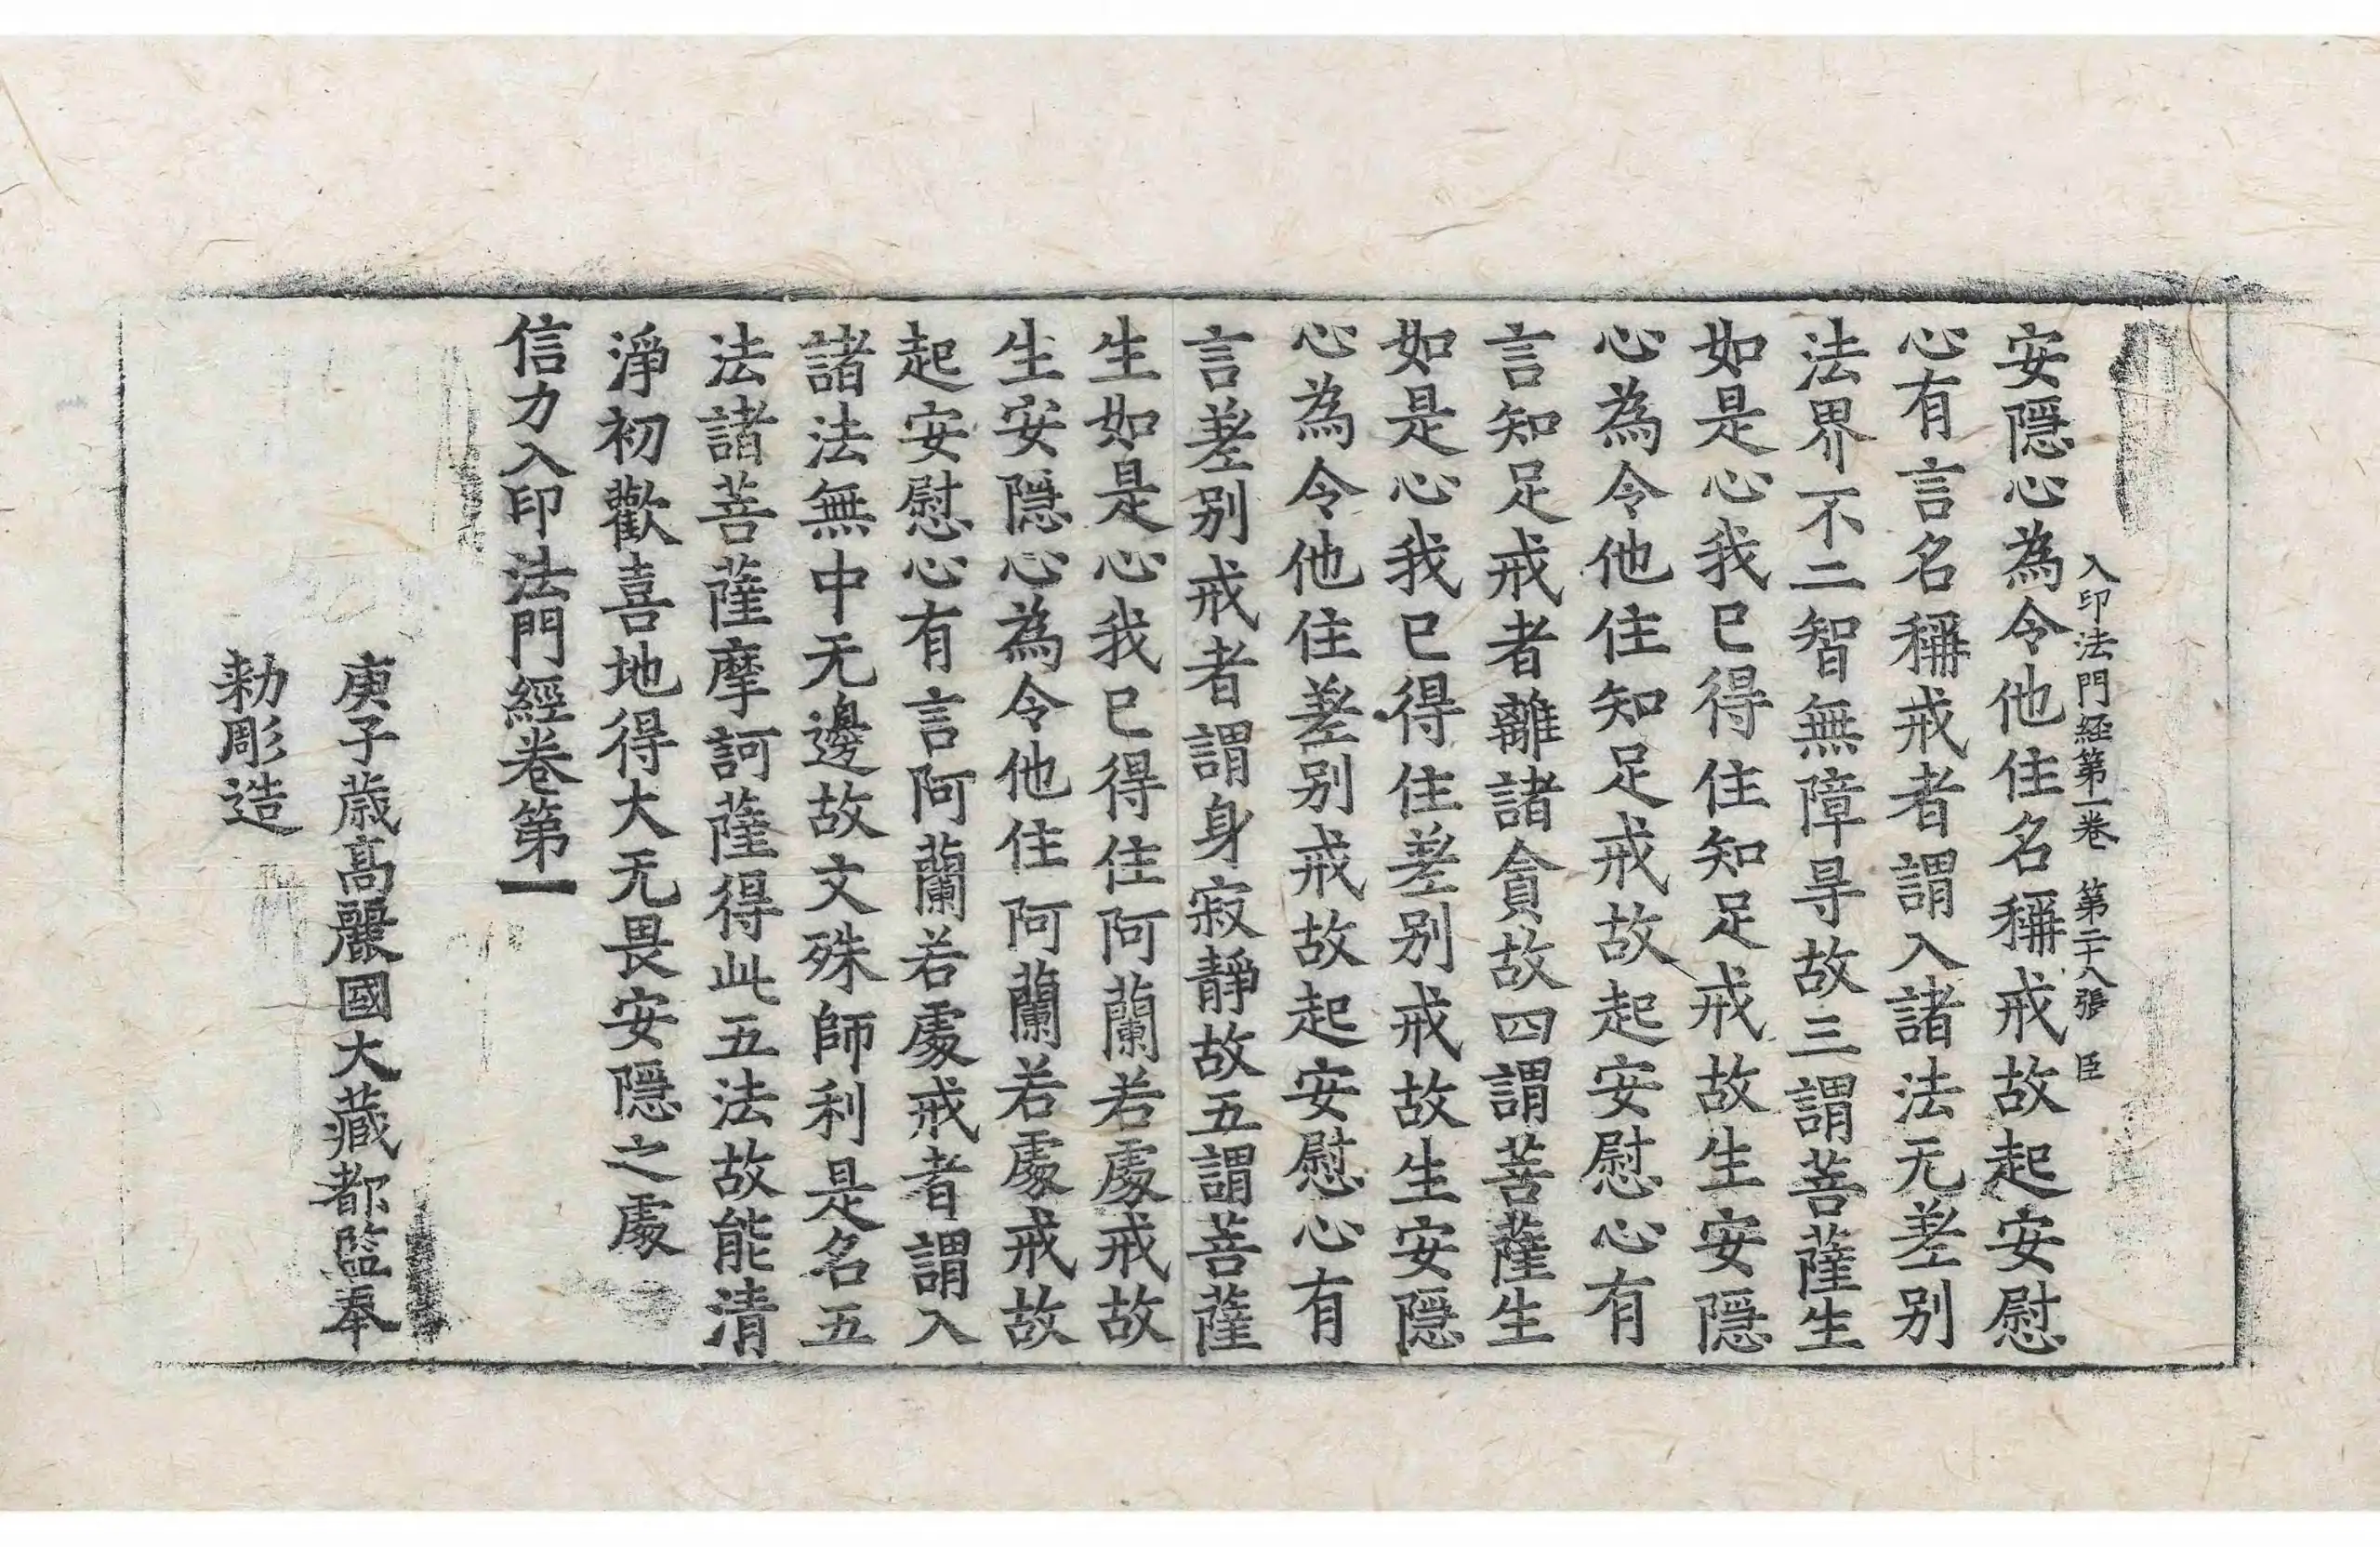 入印法門経第一卷 第二十八張 臣
安隱心為令他住名稱戒故起安慰
心有言名稱戒者謂入諸法无差别
法界不二智無障㝵故三謂菩薩生
如是心我已得住知足戒故生安隱
心為令他住知足戒故起安慰心有
言知足戒者離諸貪故四謂菩薩生
如是心我已得住差别戒故生安隱
心為令他住差别戒故起安慰心有
言差别戒者謂身寂靜故五謂菩薩
生如是心我已得住阿蘭若處戒故
生安隱心為令他住阿蘭若處戒故
起安慰心有言阿蘭若處戒者謂入
諸法無中无邊故文殊師利是名五
法諸菩薩摩訶薩得此五法故能清
淨初歡喜地得大无畏安隱之處
信力入印法門經卷第一
庚子歲高麗國大藏都監奉
勅彫造